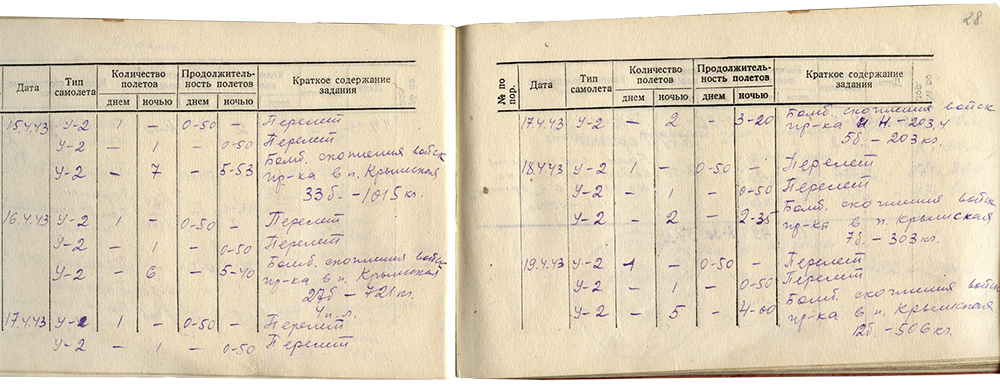 Дата Тип самолета Количество полетов Продолжительность полетов Краткое содержание задания
днем ночью днем ночью
15.4.43 У-2 1 — 0-50 — Перелет
У-2 — 1 — 0-50 Перелет
У-2 — 7 — 5-53 Бомб. скопления войск
пр-ка в п. Крымская
33б. — 1015 кг.
16.4.43 У-2 1 — 0-50 — Перелет
У-2 — 1 — 0-50 Перелет
У-2 — 6 — 5-40 Бомб. скопления войск
пр-ка в п. Крымская
27б — 721 кг.
17.4.43 У-2 1 — 0-50 — Перелет
У-2 — 1 — 0-50 Перелет
28
№ по пор. Дата Тип самолета Количество полетов Продолжительность полетов Краткое содержание задания
днем ночью днем ночью
17.4.43 У-2 — 2 — 3-20 Бомб. скопления войск
пр-ка Н — 203,4
5б — 203 кг.
18.4.43 У-2 1 — 0-50 — Перелет
У-2 — 1 — 0-50 Перелет
У-2 — 2 — 2-35 Бомб. скопления войск
пр-ка в п. Крымская
7б. — 303 кг.
19.4.43 У-2 1 — 0-50 — Перелет
У-2 — 1 — 0-50 Перелет
У-2 — 5 — 4-00 Бомб. скопления войск
пр-ка в п. Крымская
12б — 506 кг.